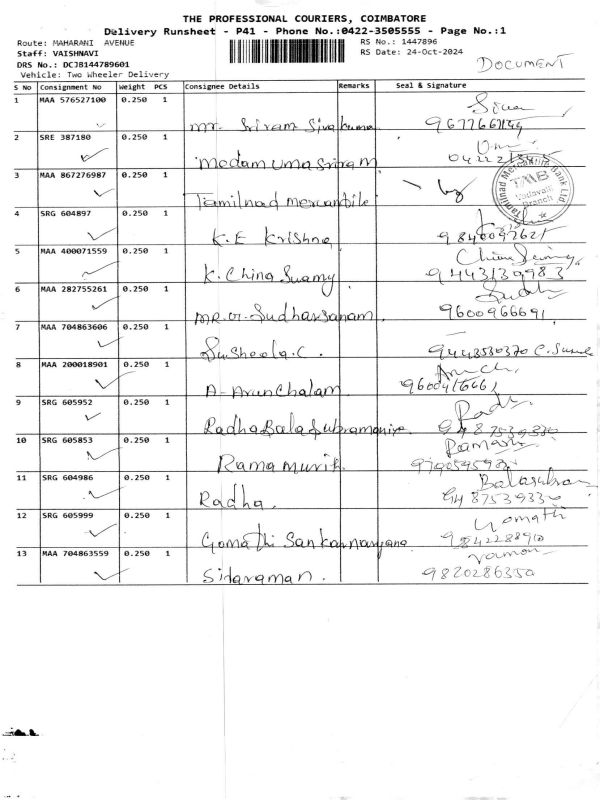 THE PROFESSIONAL COURIERS, COIMBATORE
Delivery Runsheet - P41 - Phone No.:0422-3505555 - Page No.:1
Route: MAHARANI AVENUE
RS No.: 1447896
Staff: VAISHNAVI
RS Date: 24-Oct-2024
DRS No.: DCJB144789601
DOCUMENT
Vehicle: Two Wheeler Delivery
S No Consignment No Weight PCS Consignee Details Remarks Seal & Signature
1 MAA 576527100 0.250 1
mr. Sriram Sivakumar
2 SRE 387180 0.250 1
medam uma Sriram
3 MAA 867276987 0.250 1
Tamilnad Mercantile
Tamilnad Mercantile Bank Ltd
TMB
Vadavalli
Branch
4 SRG 604897 0.250 1
K.E Krishna
5 MAA 400071559 0.250 1
K. China Suamy
9443139983
6 MAA 282755261 0.250 1
MR. G. Sudharsanam.
9600966691
7 MAA 704863606 0.250 1
Susheela.C.
9443530370 C.
8 MAA 200018901 0.250 1
A-Arunchalam
9600416661
9 SRG 605952 0.250 1
Radha Bala Subramaniya
9487539330
10 SRG 605853 0.250 1
Rama murit
11 SRG 604986 0.250 1
Radha.
9487539330
12 SRG 605999 0.250 1
Gomathi
Gomathi Sankarnaryana
9842288910
13 MAA 704863559 0.250 1
Sitaraman.
9820286350